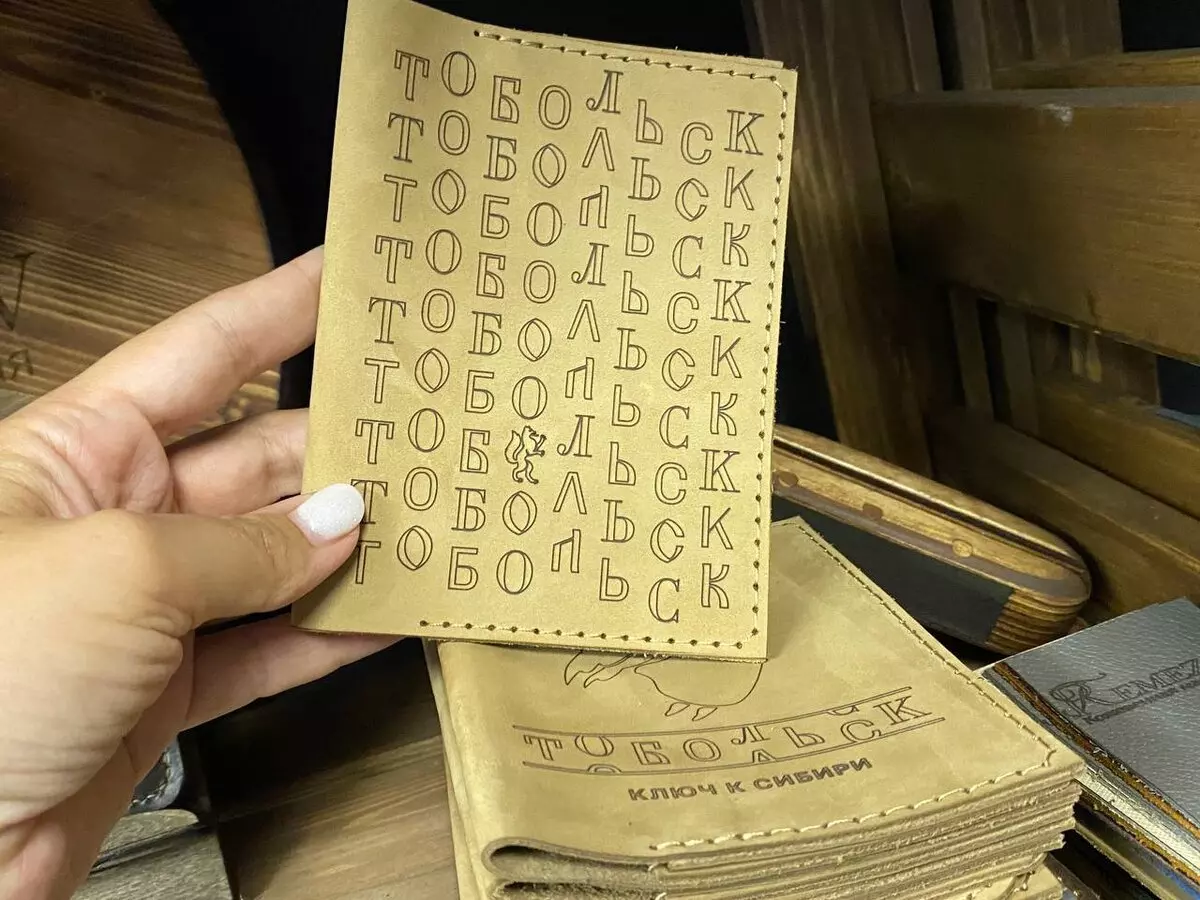 ТОБОЛЬСК
ТОБОЛЬСК
ТОБОЛЬСК
ТОБОЛЬСК
ТОБОЛЬСК
ТОБОЛЬСК
ТОБ ЛЬСК
ТОБОЛЬСК
ТОБОЛЬСК
ТОБОЛЬСК
КЛЮЧ К СИБИРИ
REMEZ